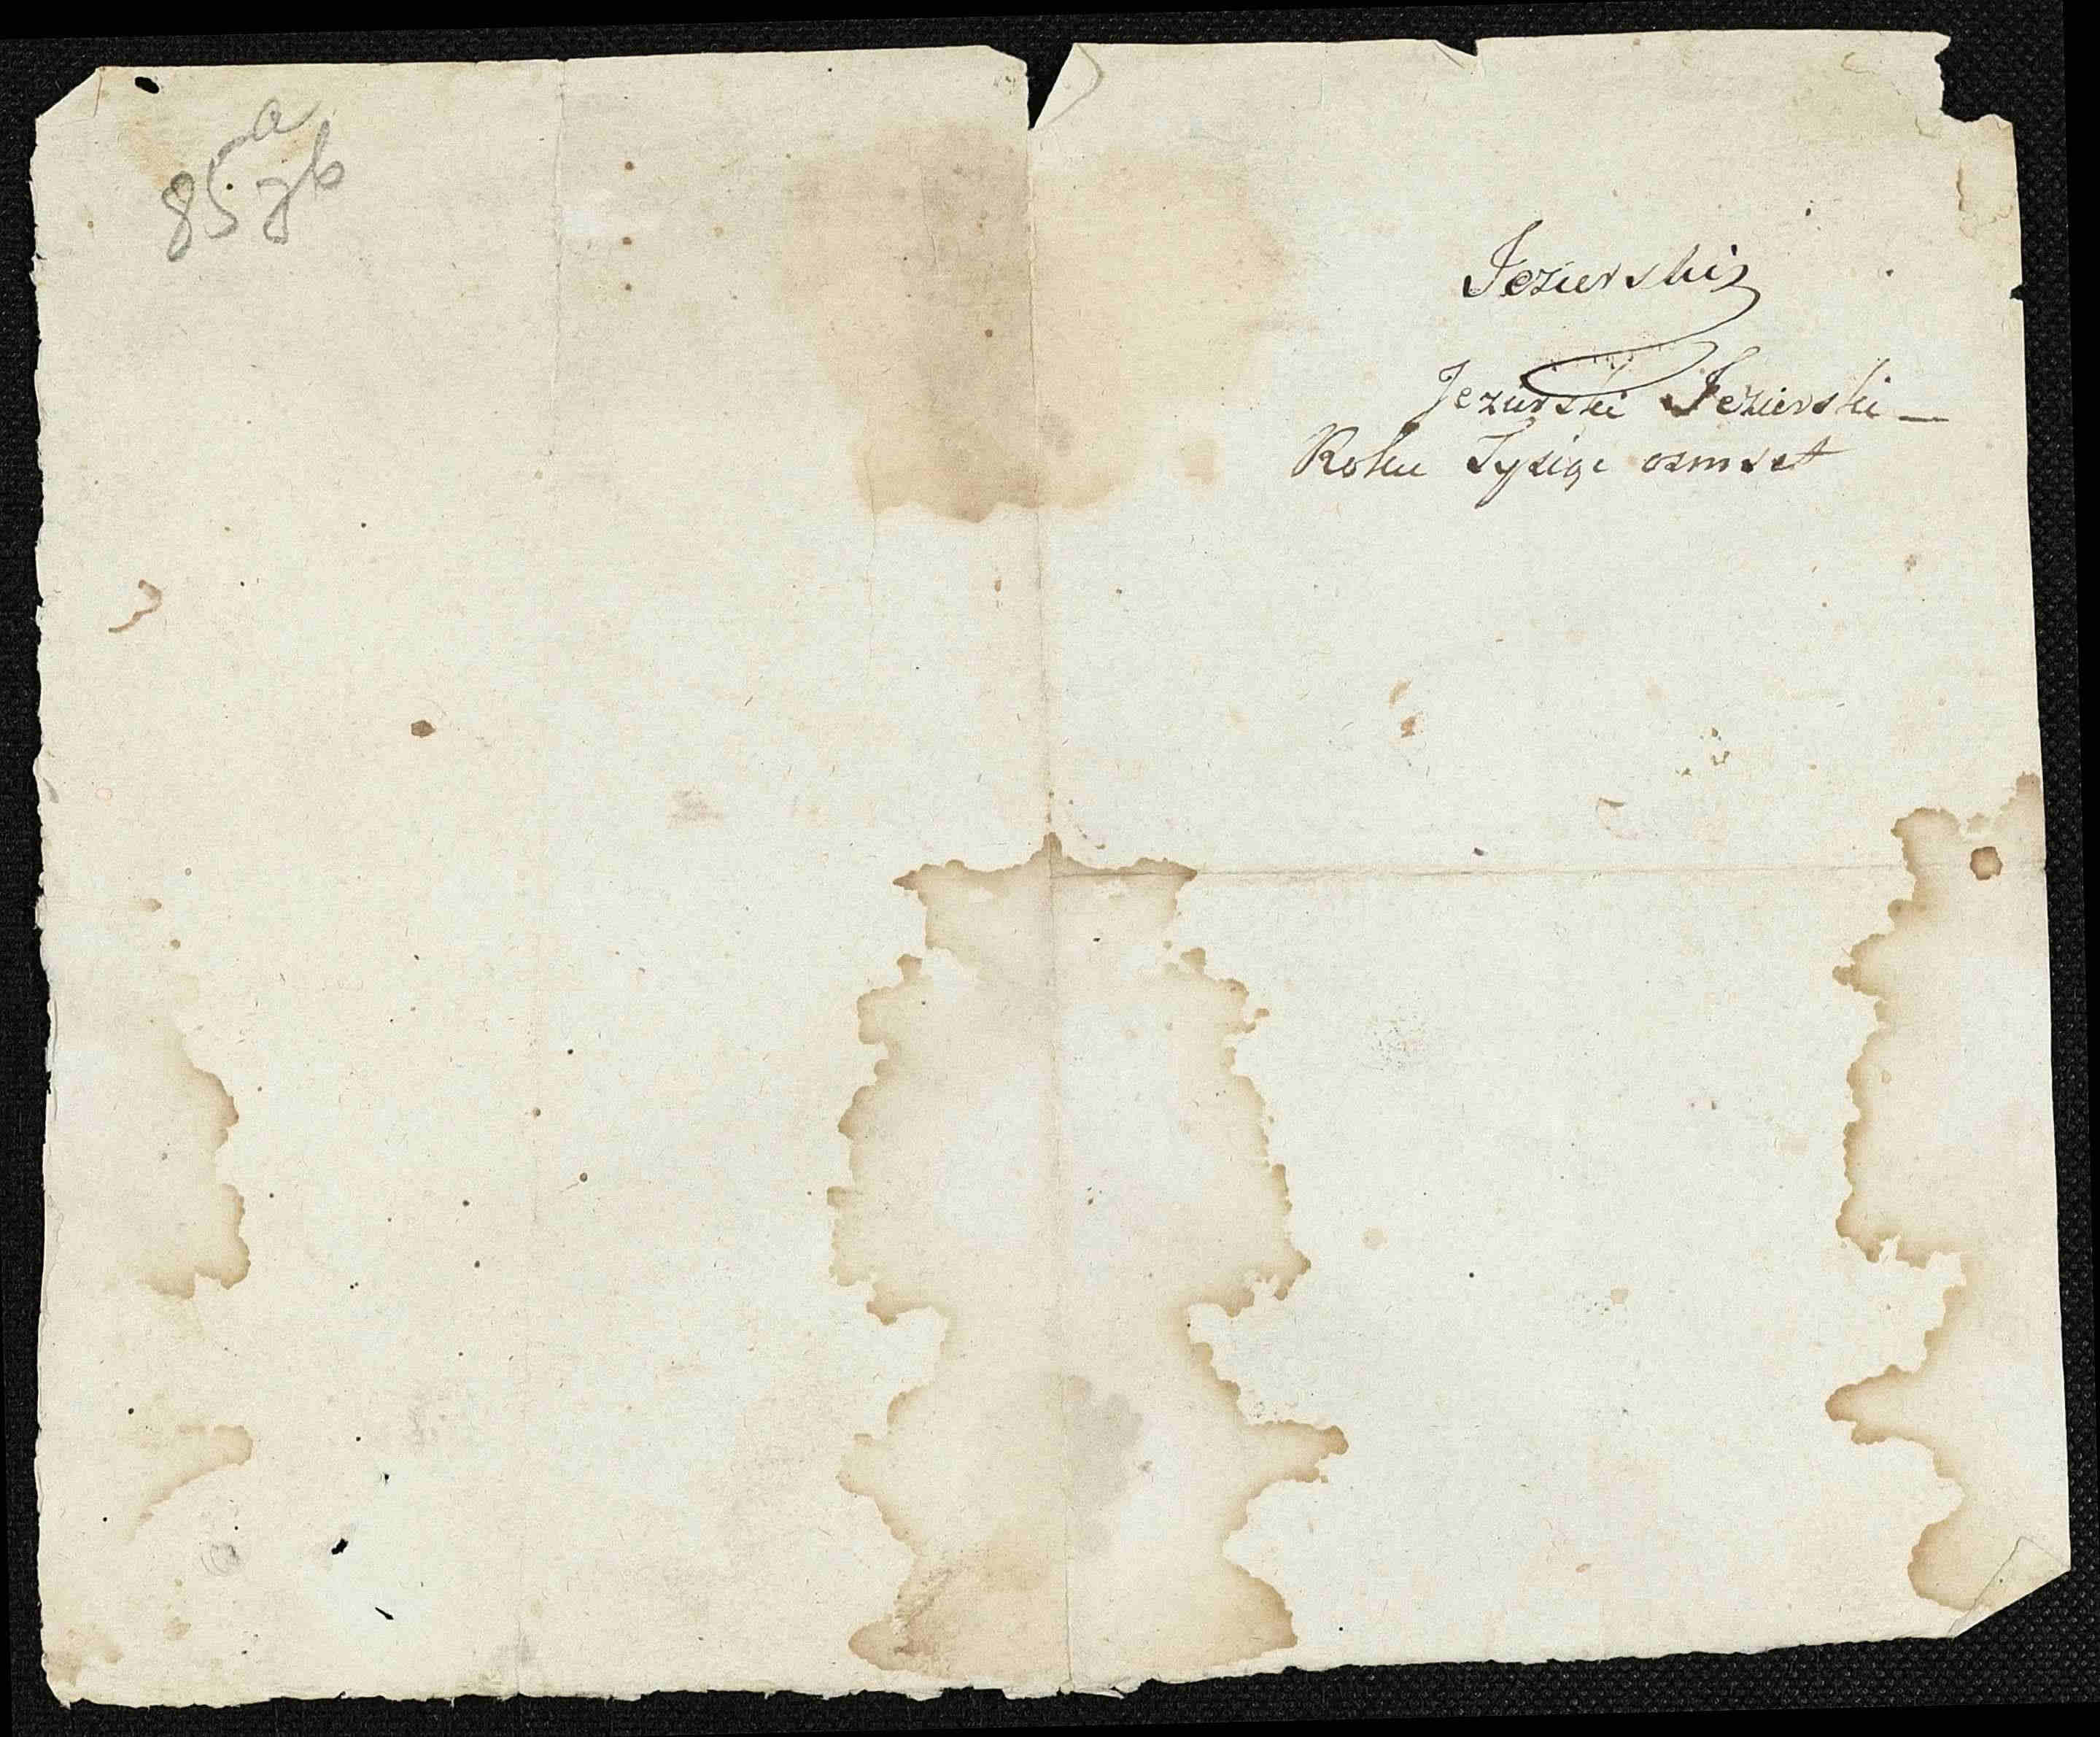 Jezierski
Jezierski Jezierski —
Roku Tysiąc osmset